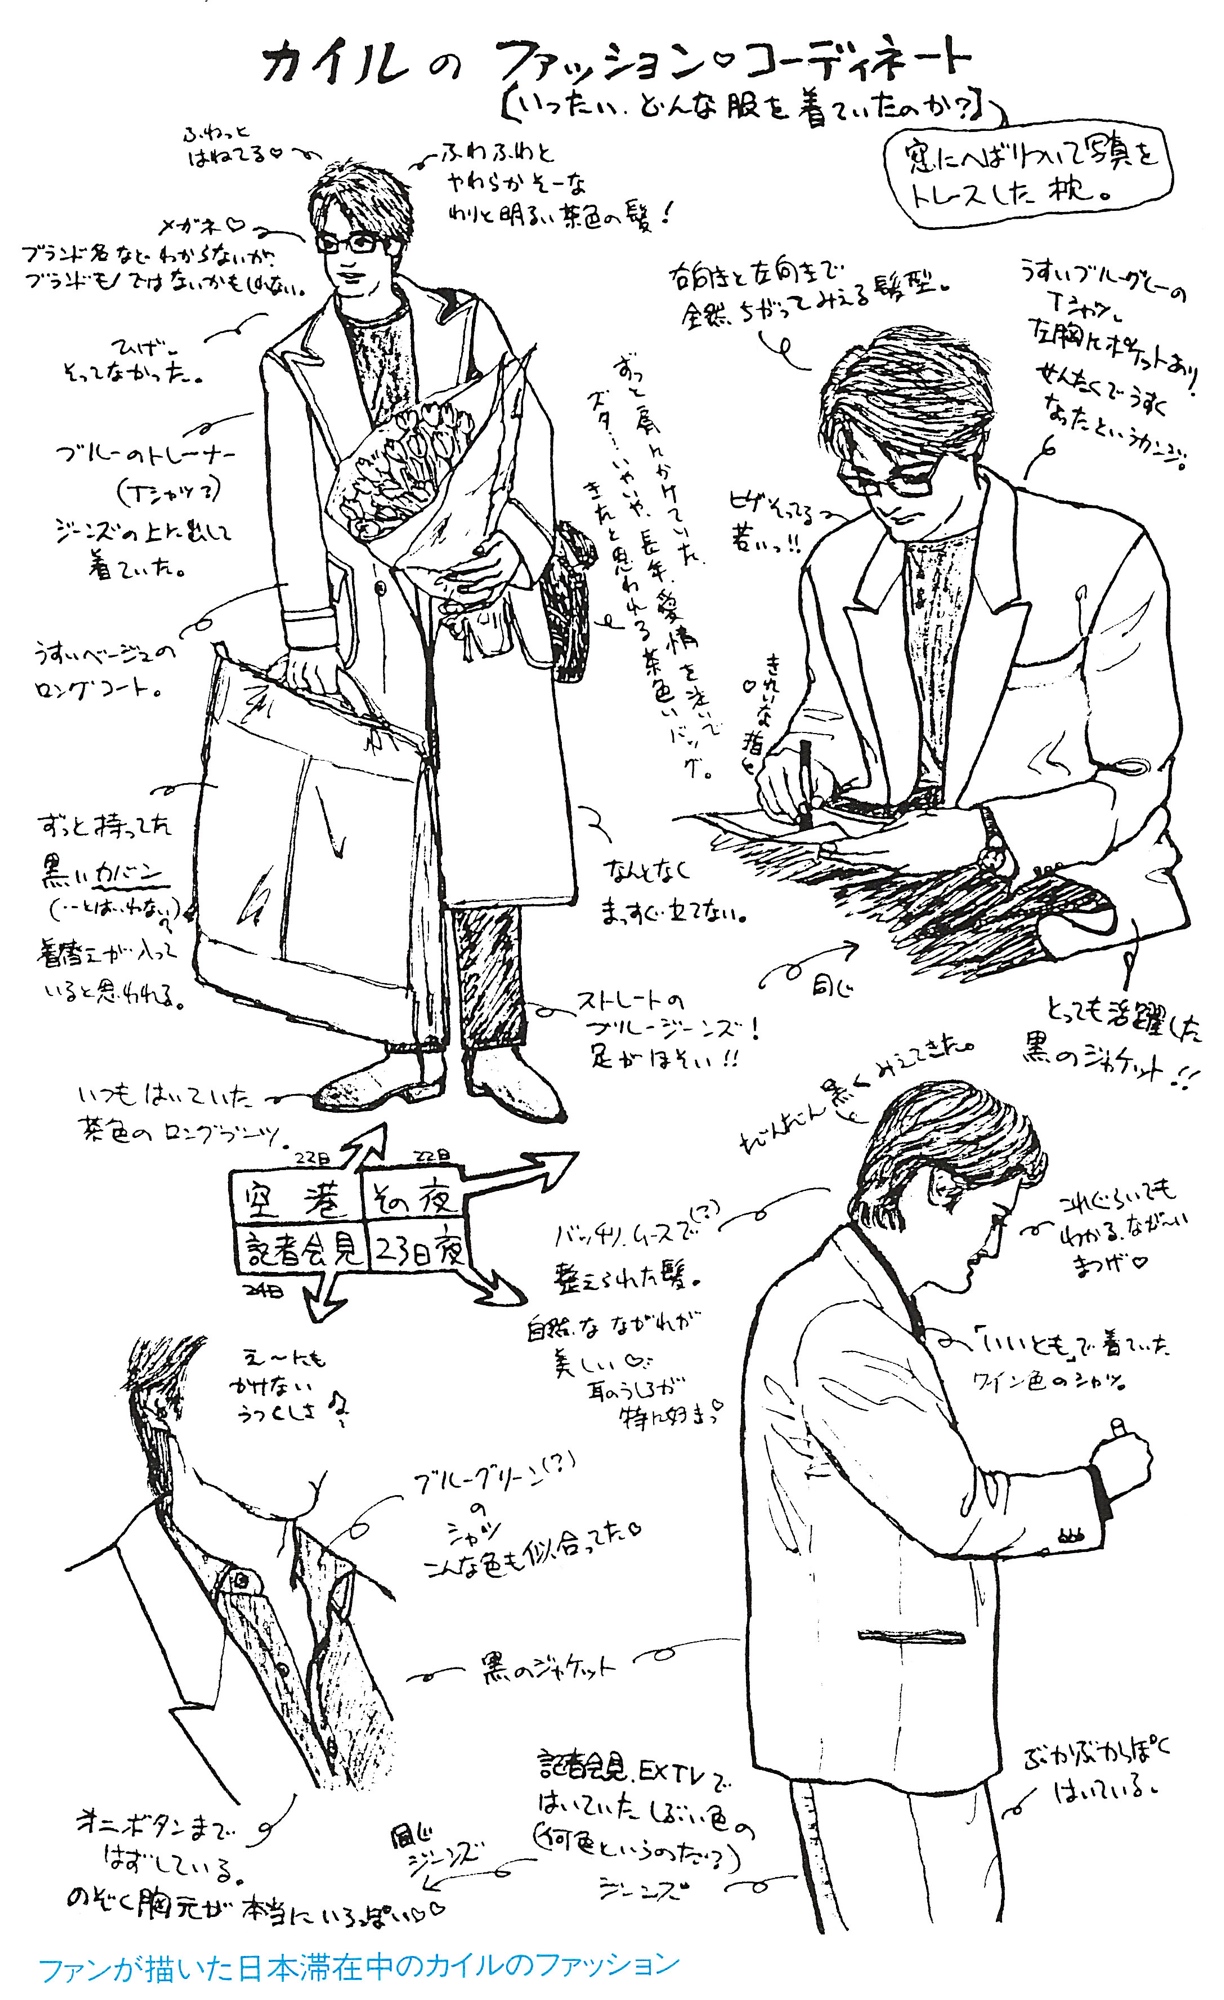 カイルの ファッション♡コーディネート
(いったい、どんな服を着ていたのか?)
窓にへばりついて写真を
トレースした 枕。
ふわっと
はねてる♡
ふわふわと
やわらかそーな
わりと明るい茶色の髪!
メガネ♡
ブランド名などわからないが、
ブランドモノではないかもしれない。
ひげ。
そってなかった。
ブルーのトレーナー
(Tシャツ?)
ジーンズの上に出して
着ていた。
うすいベージュの
ロングコート。
ずっと持ってた
黒いカバン
(…とはいわない)
着替えが入って
いると思われる。
いつもはいていた
茶色の ロングブーツ。
ずっと肩にかけていた、
ズタ…いやいや、長年、愛情を注いで
きたと思われる茶色いバッグ。
なんとなく
まっすぐ立てない。
ストレートの
ブルージーンズ!
足がほそい!!
右向きと左向きで
全然、ちがってみえる髪型。
うすいブルーグレーの
Tシャツ。
左胸にポケットあり!
せんたくでうすく
なったというカンジ。
ヒゲそってる
若いっ!!
きれいな指
♡
同じ
とっても活躍した
黒のジャケット!!
22日
22日
空港
その夜
記者会見
23日夜
24日
だんだん黒くみえてきた。
バッチリ、ムースで(?)
整えられた髪。
自然な ながれが
美しい♡
耳のうしろが
特に好きっ♡
これぐらいでも
わかる、なが〜い
まつげ♡
「いいとも」で着ていた
ワイン色のシャツ。
え〜にも
かけない
うつくしさ
ブルーグリーン(?)
の
シャツ
こんな色も似合ってた♡
黒のジャケット
オニボタンまで
はずしている。
のぞく胸元が本当にいろっぽい♡♡
同じ
ジーンズ
記者会見、EXTVで
はいていた しぶい色の
(何色というのだ?)
ジーンズ
ぶかぶかっぽく
はいている。
ファンが描いた日本滞在中のカイルのファッション